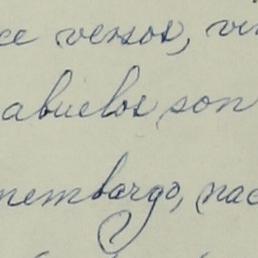 ce versos, vi
abuelos son
nembargo, nac